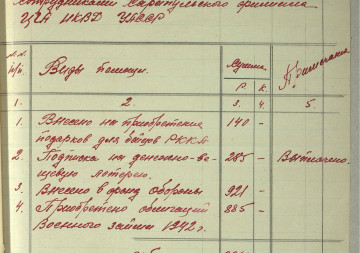 сотрудниками Сарапульского филиала
ЦГА НКВД УАССР
№.№. п/п. Виды помощи. Сумма Примечание
Р. К.
1. 2 3. 4. 5.
1. Внесено на приобретение 140 -
подарков для бойцов РККА
2. Подписка на денежно-ве- 285 - Выплачено.
щевую лотерею.
3. Внесено в фонд Обороны 921 -
4. Приобретено облигаций 885 -
Военного займа 1942 г.